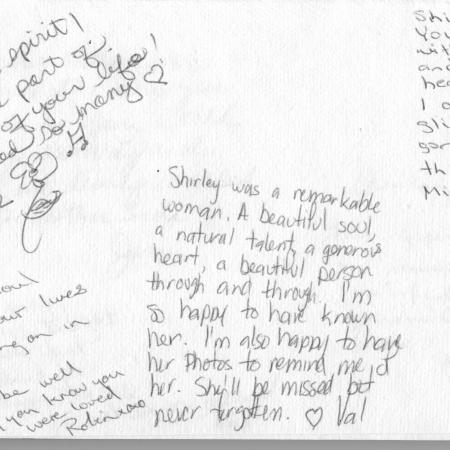 spirit!
part of
of your life!
so many ♡
Shirley was a remarkable
woman. A beautiful soul,
a natural talent, a generous
heart, a beautiful person
through and through. I'm
so happy to have known
her. I'm also happy to have
her photos to remind me of
her. She'll be missed but
never forgotten. ♡ Val
soul
our lives
on in
be well
you know you
were loved
Robin xoxo
Shi
You
wit
and
hea
I a
gli
gar
th
Mi